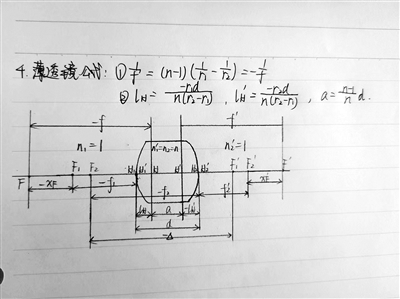 4. 薄透镜公式: ① 1/f' = (n-1)(1/r₁ - 1/r₂) = -1/f
② l_H = -r₁d / n(r₂-r₁) , l_H' = -r₂d / n(r₂-r₁) , a = n-1/n d.
-f f'
n₁=1 n₁'=n₂=n n₂'=1
F F₁ F₂ H F₁' F₂' F'
-x_F -f₁ -f₂ f₂' x_F'
l_H a -l_H'
d
-Δ